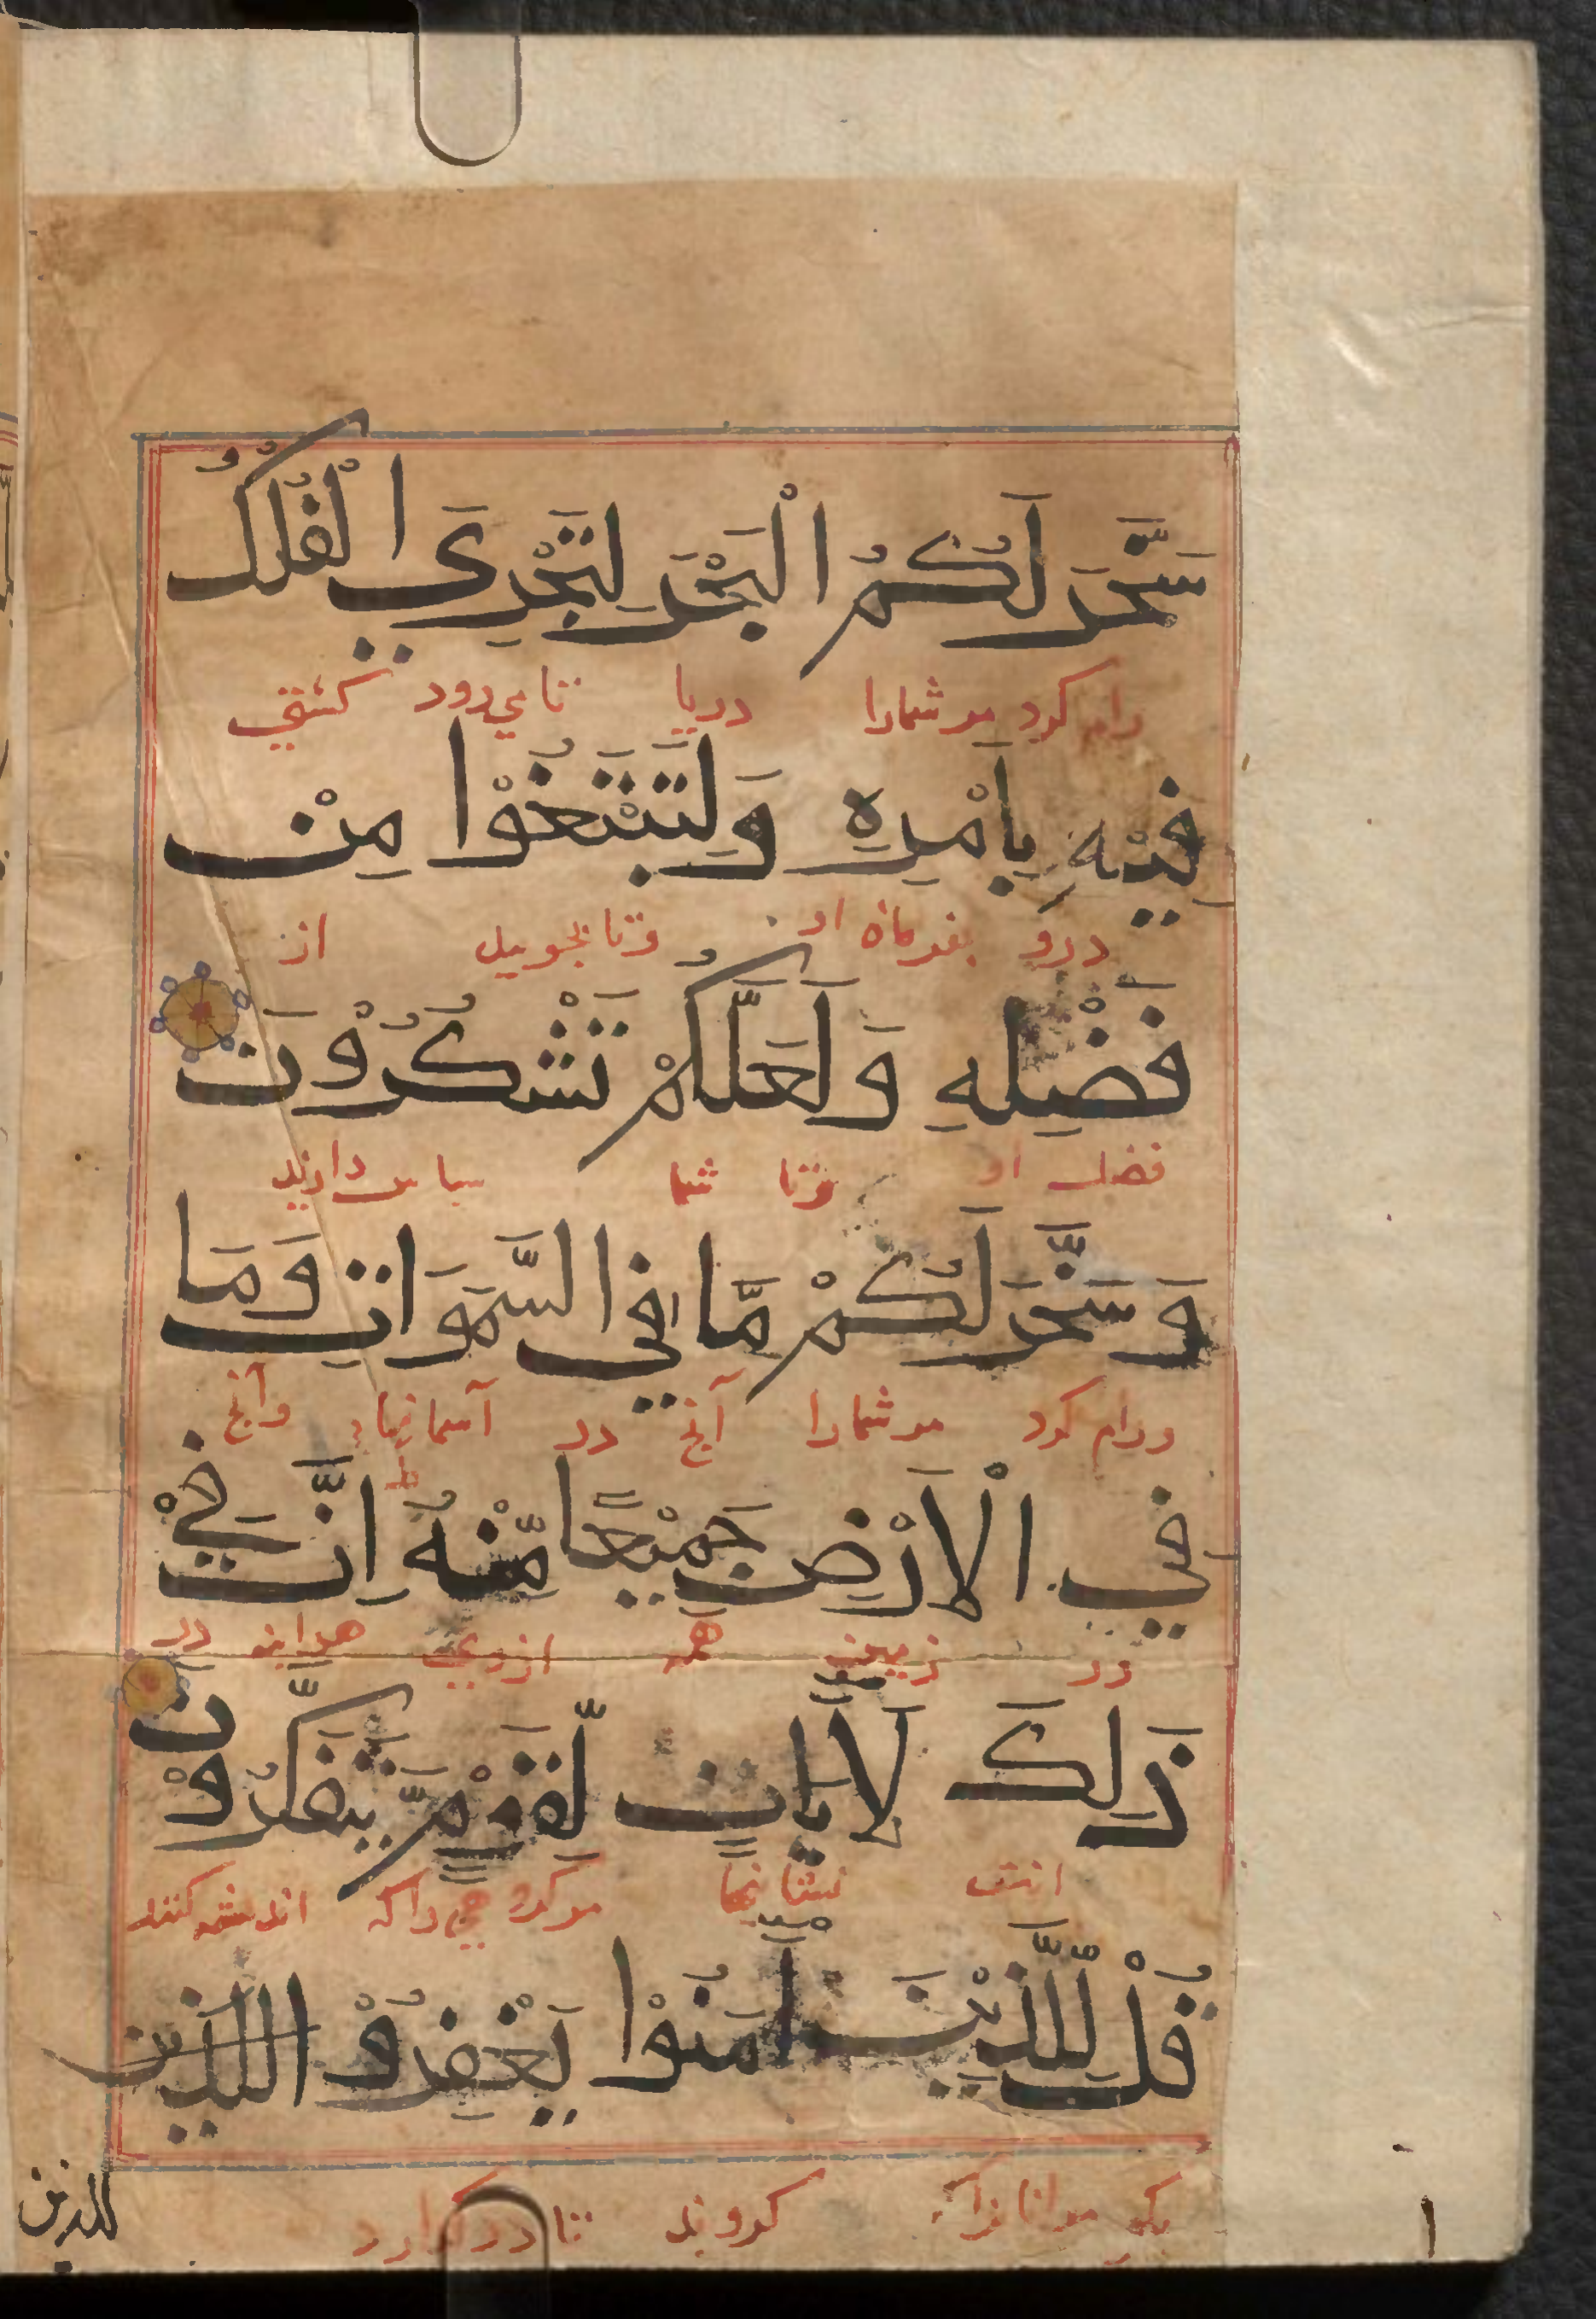 سَخَّرَ لَكُمُ الْبَحْرَ لِتَجْرِيَ الْفُلْكُ
رام کرد مر شمارا دریا تا می رود کشتی
فِيْهِ بِاَمْرِهِ وَلِتَبْتَغُوْا مِنْ
درو بفرمان او وتا بجویید از
فَضْلِهِ وَلَعَلَّكُمْ تَشْكُرُوْنَ
فضل او وتا شما سپاس دارید
وَسَخَّرَ لَكُمْ مَّا فِي السَّمَوَاتِ وَمَا
ورام کرد مر شمارا آنچ در آسمانها وآنچ
فِي الْاَرْضِ جَمِيْعًا مِّنْهُ اِنَّ فِيْ
در زمین همه ازوی هراینه در
ذَلِكَ لَاَيَاتٍ لِّقَوْمٍ يَّتَفَكَّرُوْنَ
انست نشانها مر گروهی راکه اندیشه کنند
قُلْ لِّلَّذِيْنَ اٰمَنُوْا يَغْفِرُوْا للذين
بگو مر انانراکه گرویدند تا در گذارد
للذين
١